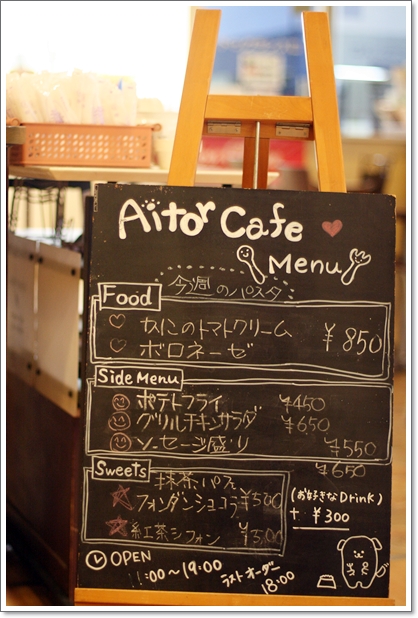 Aitor Cafe
Menu
今週のパスタ
Food
カニのトマトクリーム ¥850
ボロネーゼ
Side Menu
ポテトフライ ¥450
グリルチキンサラダ ¥650
ソーセージ盛り ¥550
Sweets
抹茶パフェ ¥650
フォンダンショコラ ¥500
紅茶シフォン ¥500
(お好きなDrink)
+ ¥300
OPEN
11:00~19:00
ラストオーダー
18:00